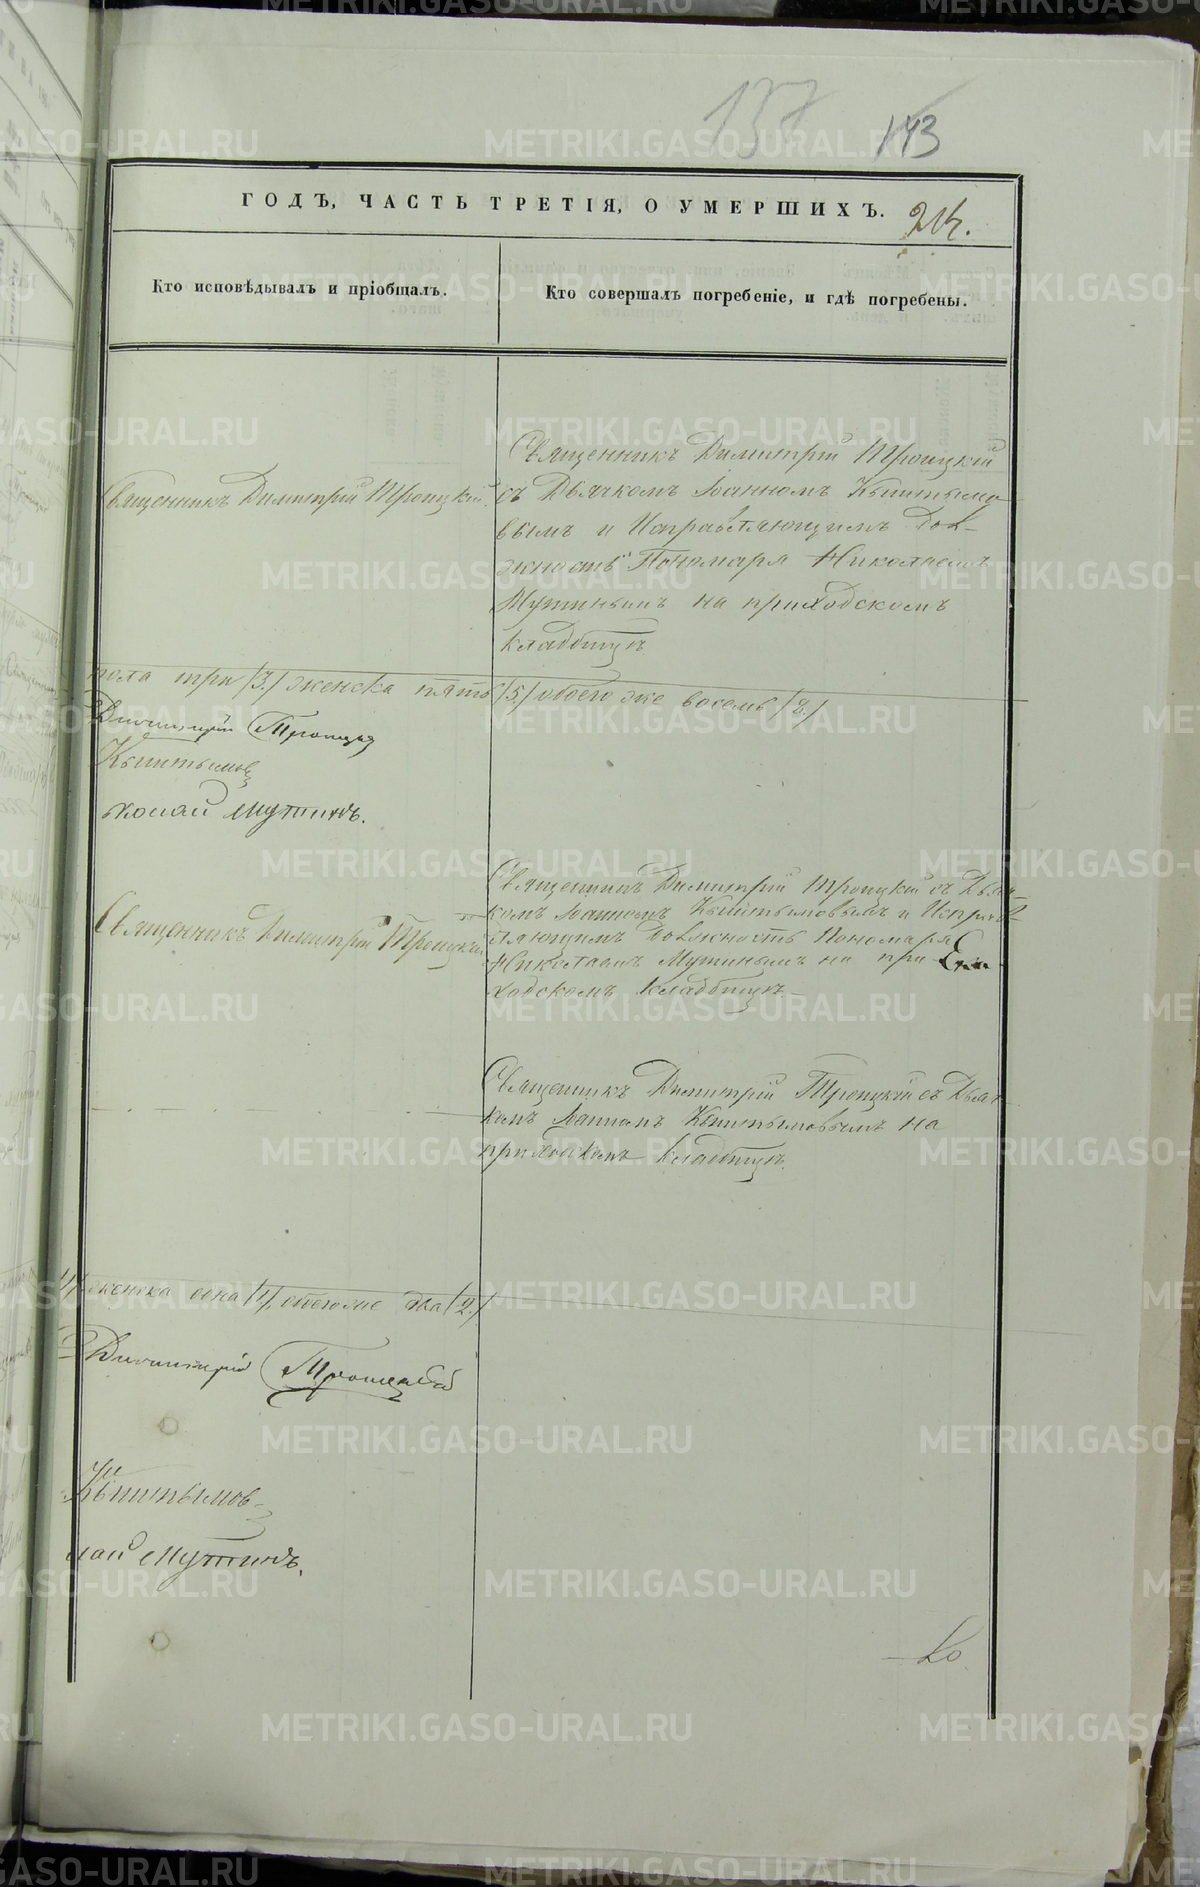 137 143
ГОДЪ, ЧАСТЬ ТРЕТІЯ, О УМЕРШИХЪ.
Кто исповѣдывалъ и пріобщалъ.
Кто совершалъ погребеніе, и гдѣ погребены.
Священникъ Димитрій Троицкій
Священникъ Димитрій Троицкій
съ Дьячкомъ Іоанномъ Кыштымо
вымъ и Исправляющимъ дол-
жность Пономаря Николаемъ
Мутинымъ на приходскомъ
кладбищѣ
пола три /3./ женска пять /5./ обоего же восемь /8./
Димитрій Троицкій
Кыштымовъ
колай Мутинъ.
Священникъ Димитрій Троицкій
Священникъ Димитрій Троицкій съ Дьяч-
комъ Іоанномъ Кыштымовымъ и Исправ
ляющимъ должность Пономаря
Николаемъ Мутинымъ на при-
ходскомъ кладбищѣ.
Священникъ Димитрій Троицкій съ Дьяч-
комъ Іоанномъ Кыштымовымъ на
приходскомъ кладбищѣ.
женска одна /1/, обоего же два /2./
Димитрій Троицкій
Кыштымовъ
лай Мутинъ.
METRIKI.GASO-URAL.RU